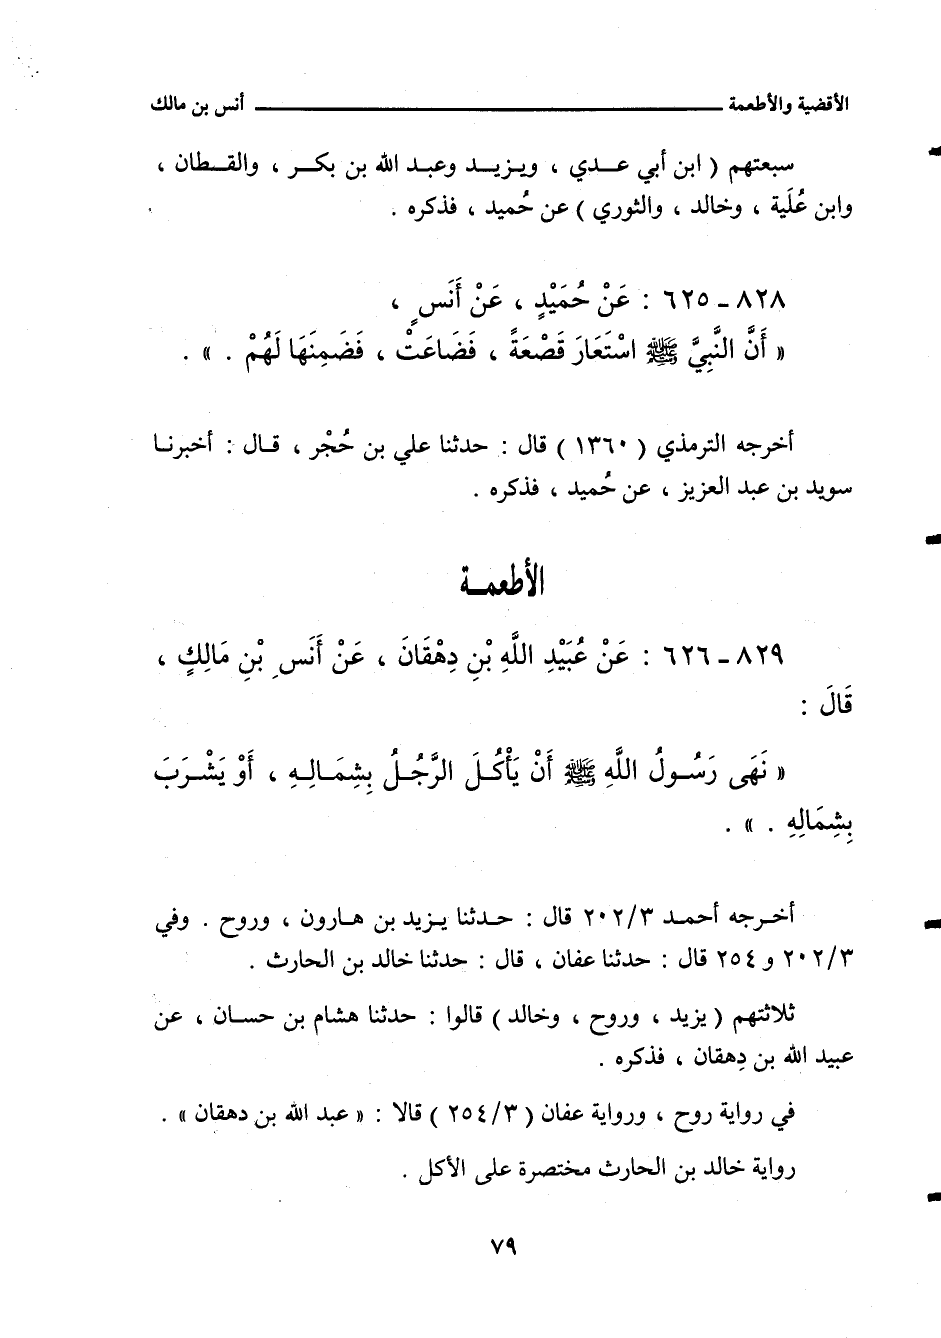 الأقضية والأطعمة ــــــــــــــــــــ أنس بن مالك
سبعتهم ( ابن أبي عدي ، ويزيد وعبد الله بن بكر ، والقطان ،
وابن عُلَية ، وخالد ، والثوري ) عن حُميد ، فذكره .
٨٢٨ ـ ٦٢٥ : عَنْ حُمَيْدٍ ، عَنْ أَنَسٍ ،
« أَنَّ النَّبِيَّ ﷺ اسْتَعَارَ قَصْعَةً ، فَضَاعَتْ ، فَضَمِنَهَا لَهُمْ . » .
أخرجه الترمذي ( ١٣٦٠ ) قال : حدثنا علي بن حُجْر ، قال : أخبرنا
سويد بن عبد العزيز ، عن حُميد ، فذكره .
الأطعمة
٨٢٩ ـ ٦٢٦ : عَنْ عُبَيْدِ اللَّهِ بْنِ دِهْقَانَ ، عَنْ أَنَسِ بْنِ مَالِكٍ ،
قَالَ :
« نَهَى رَسُولُ اللَّهِ ﷺ أَنْ يَأْكُلَ الرَّجُلُ بِشِمَالِهِ ، أَوْ يَشْرَبَ
بِشِمَالِهِ . » .
أخرجه أحمد ٢٠٢/٣ قال : حدثنا يزيد بن هارون ، وروح . وفي
٢٠٢/٣ و ٢٥٤ قال : حدثنا عفان ، قال : حدثنا خالد بن الحارث .
ثلاثتهم ( يزيد ، وروح ، وخالد ) قالوا : حدثنا هشام بن حسان ، عن
عبيد الله بن دِهقان ، فذكره .
في رواية روح ، ورواية عفان ( ٢٥٤/٣ ) قالا : « عبد الله بن دهقان » .
رواية خالد بن الحارث مختصرة على الأكل .
٧٩